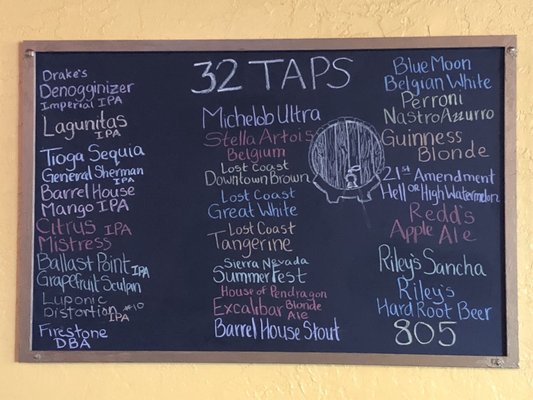 32 TAPS
Drake's
Denogginizer
Imperial IPA
Lagunitas
IPA
Tioga Sequia
General Sherman
IPA
Barrel House
Mango IPA
Citrus IPA
Mistress
Ballast Point IPA
Grapefruit Sculpin
Luponic
Distortion #10
IPA
Firestone
DBA
Michelob Ultra
Stella Artois
Belgium
Lost Coast
Downtown Brown
Lost Coast
Great White
Lost Coast
Tangerine
Sierra Nevada
Summerfest
House of Pendragon
Excalibar Blonde
Ale
Barrel House Stout
Blue Moon
Belgian White
Perroni
Nastro Azzurro
Guinness
Blonde
21st Amendment
Hell or High Watermelon
Redd's
Apple Ale
Riley's Sancha
Riley's
Hard Root Beer
805